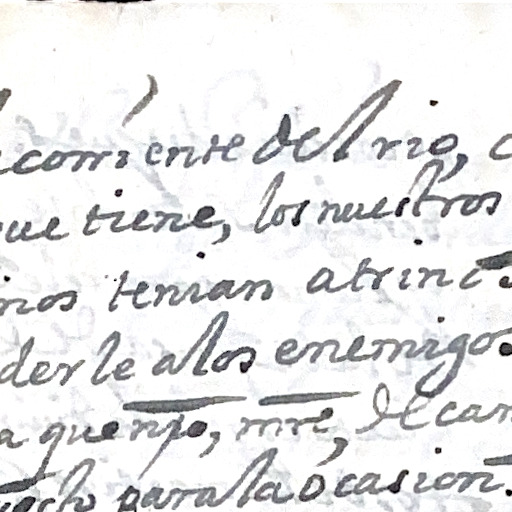 corriente del rio, c
ue tiene, los nuestros
nos tenian atrinc
derle alos enemigos
a que npo, mre, de can
para la ocasion.